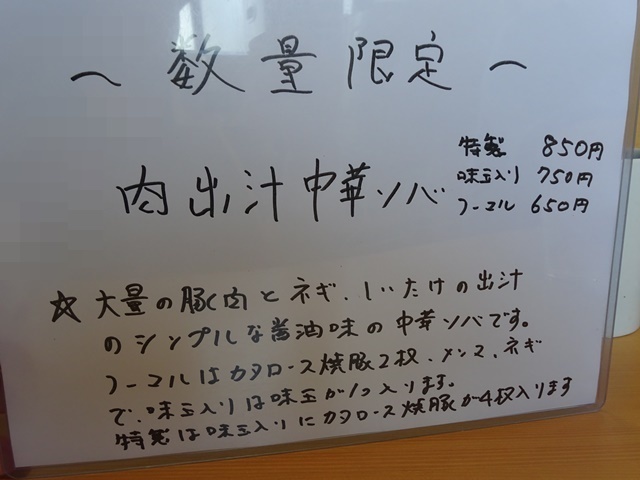 ～数量限定～
特製 850円
味玉入り 750円
ノーマル 650円
肉出汁中華ソバ
☆大量の豚肉とネギ、しいたけの出汁
のシンプルな醤油味の中華ソバです。
ノーマルはカタロース焼豚2枚、メンマ、ネギ
で、味玉入りは味玉が1つ入ります。
特製は味玉入りにカタロース焼豚が4枚入ります